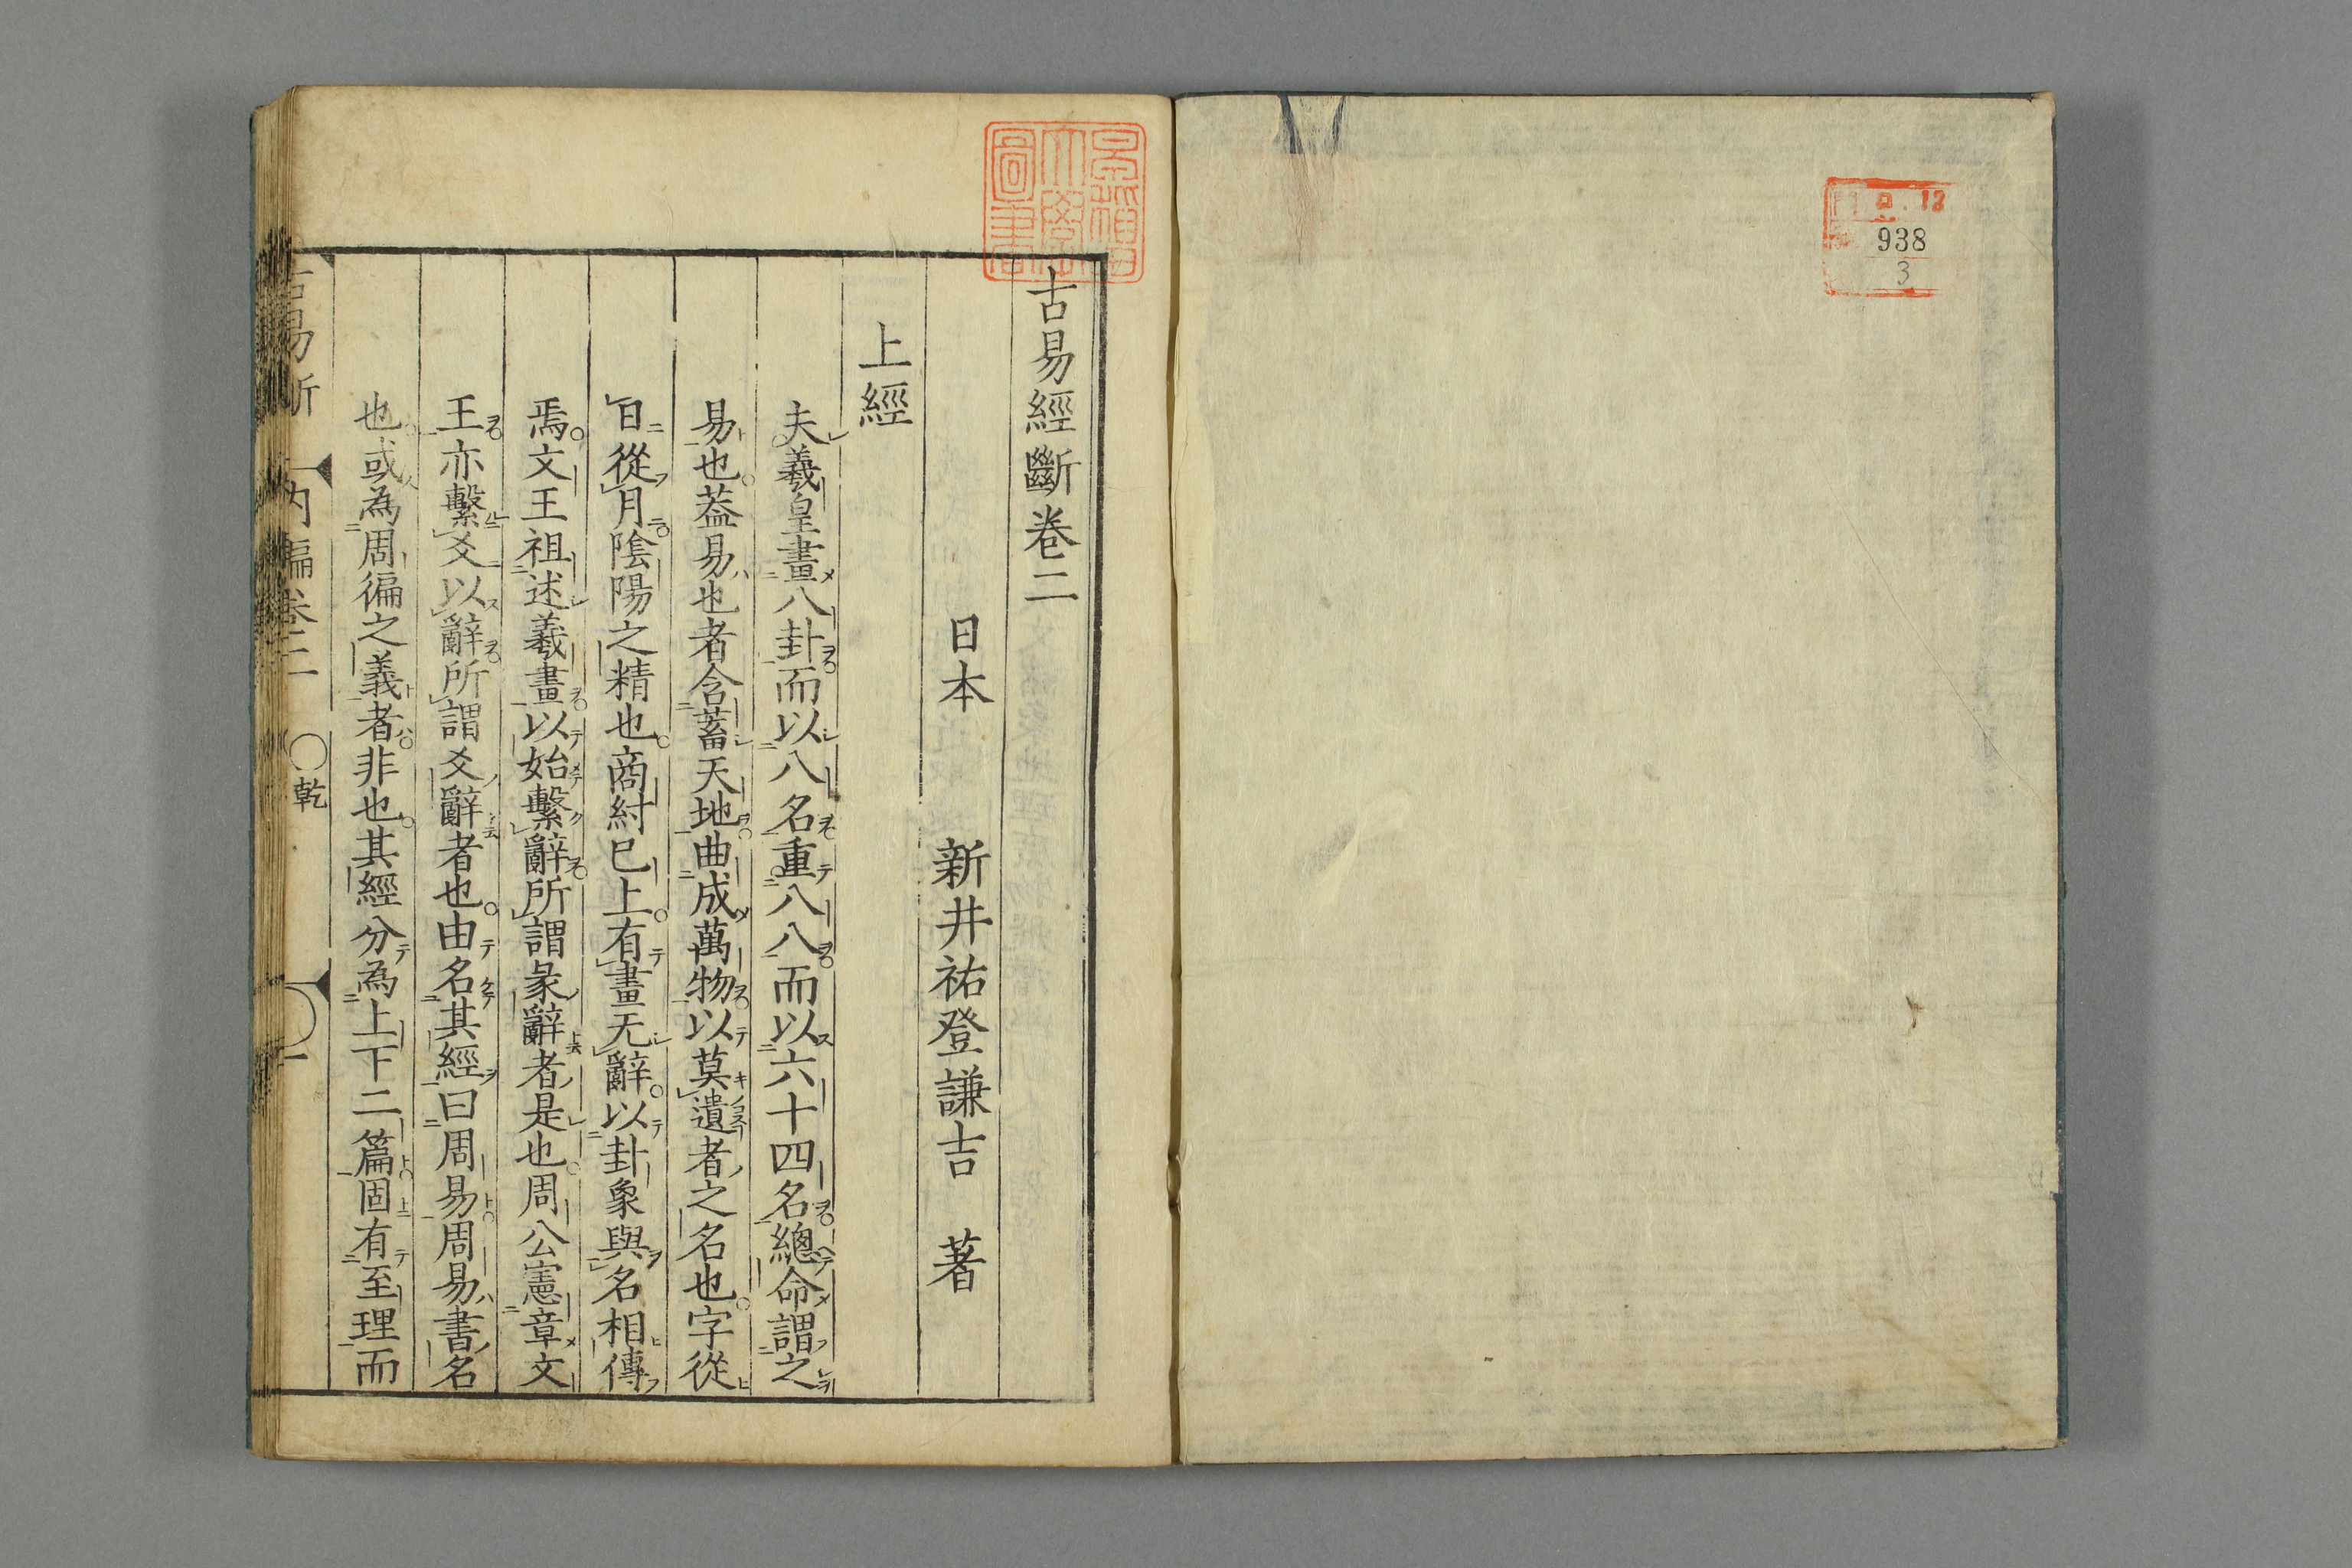 ロ 12
938
3
早稲田大學圖書
古易經斷卷二
日本 新井祐登謙吉 著
上經
夫羲皇畫八卦而以八名重八八而以六十四名總命謂之
易也葢易也者含蓄天地曲成萬物以莫遺者之名也字從
日從月陰陽之精也商紂已上有畫无辭以卦象與名相傳
焉文王祖述羲畫以始繫辭所謂彖辭者是也周公憲章文
王亦繫爻以辭所謂爻辭者也由名其經曰周易周易書名
也或為周徧之義者非也其經分為上下二篇固有至理而
古易斷 内編卷二 〇乾 一